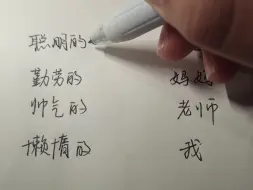 聪明的
勤劳的 妈妈
帅气的 老师
懒惰的 我